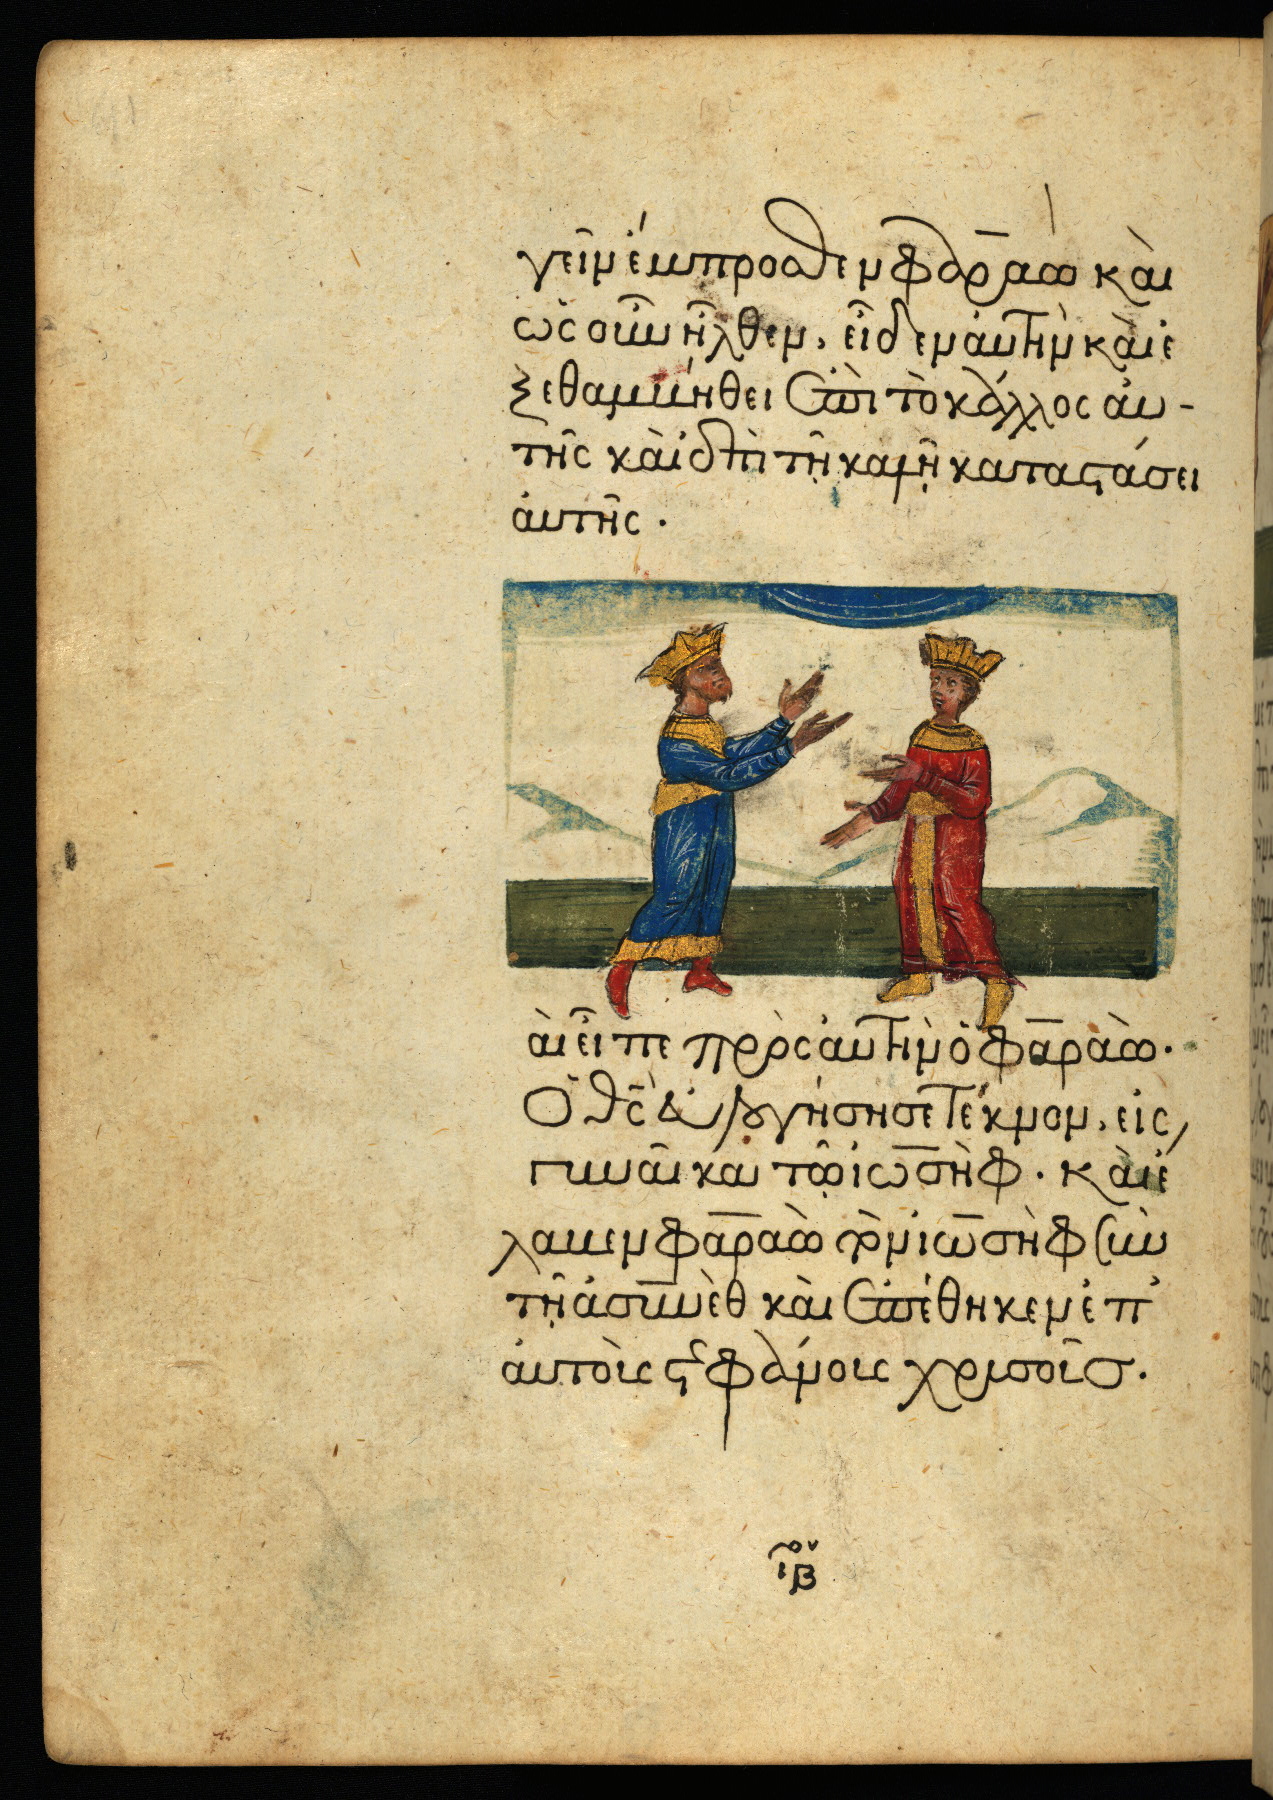 γεῖν ἔμπροσθεν φαραὼ καὶ
ὡς οὖν ἦλθεν, εἶδεν ἀυτὴν καὶ ἐ
ξεθαμβήθει ἐπὶ τὸ κάλλος ἀυ-
τῆς καὶ ἐπὶ τῇ καινῇ καταστάσει
ἀυτῆς.
ὰι εἶπε πρὸς ἀυτὴν ὁ φαραὼ.
Ὁ θς τέκνον, εἰς
γυναῖκαν τῷ ἰωσὴφ. καὶ ἔ
λαβεν φαραὼ τὸν ἰωσὴφ σὺν
τῇ ἀσυνὲθ καὶ ἐπέθηκεν ἐπ'
ἀυτοὶς στεφάνοις χρισοῖς.
ιβου